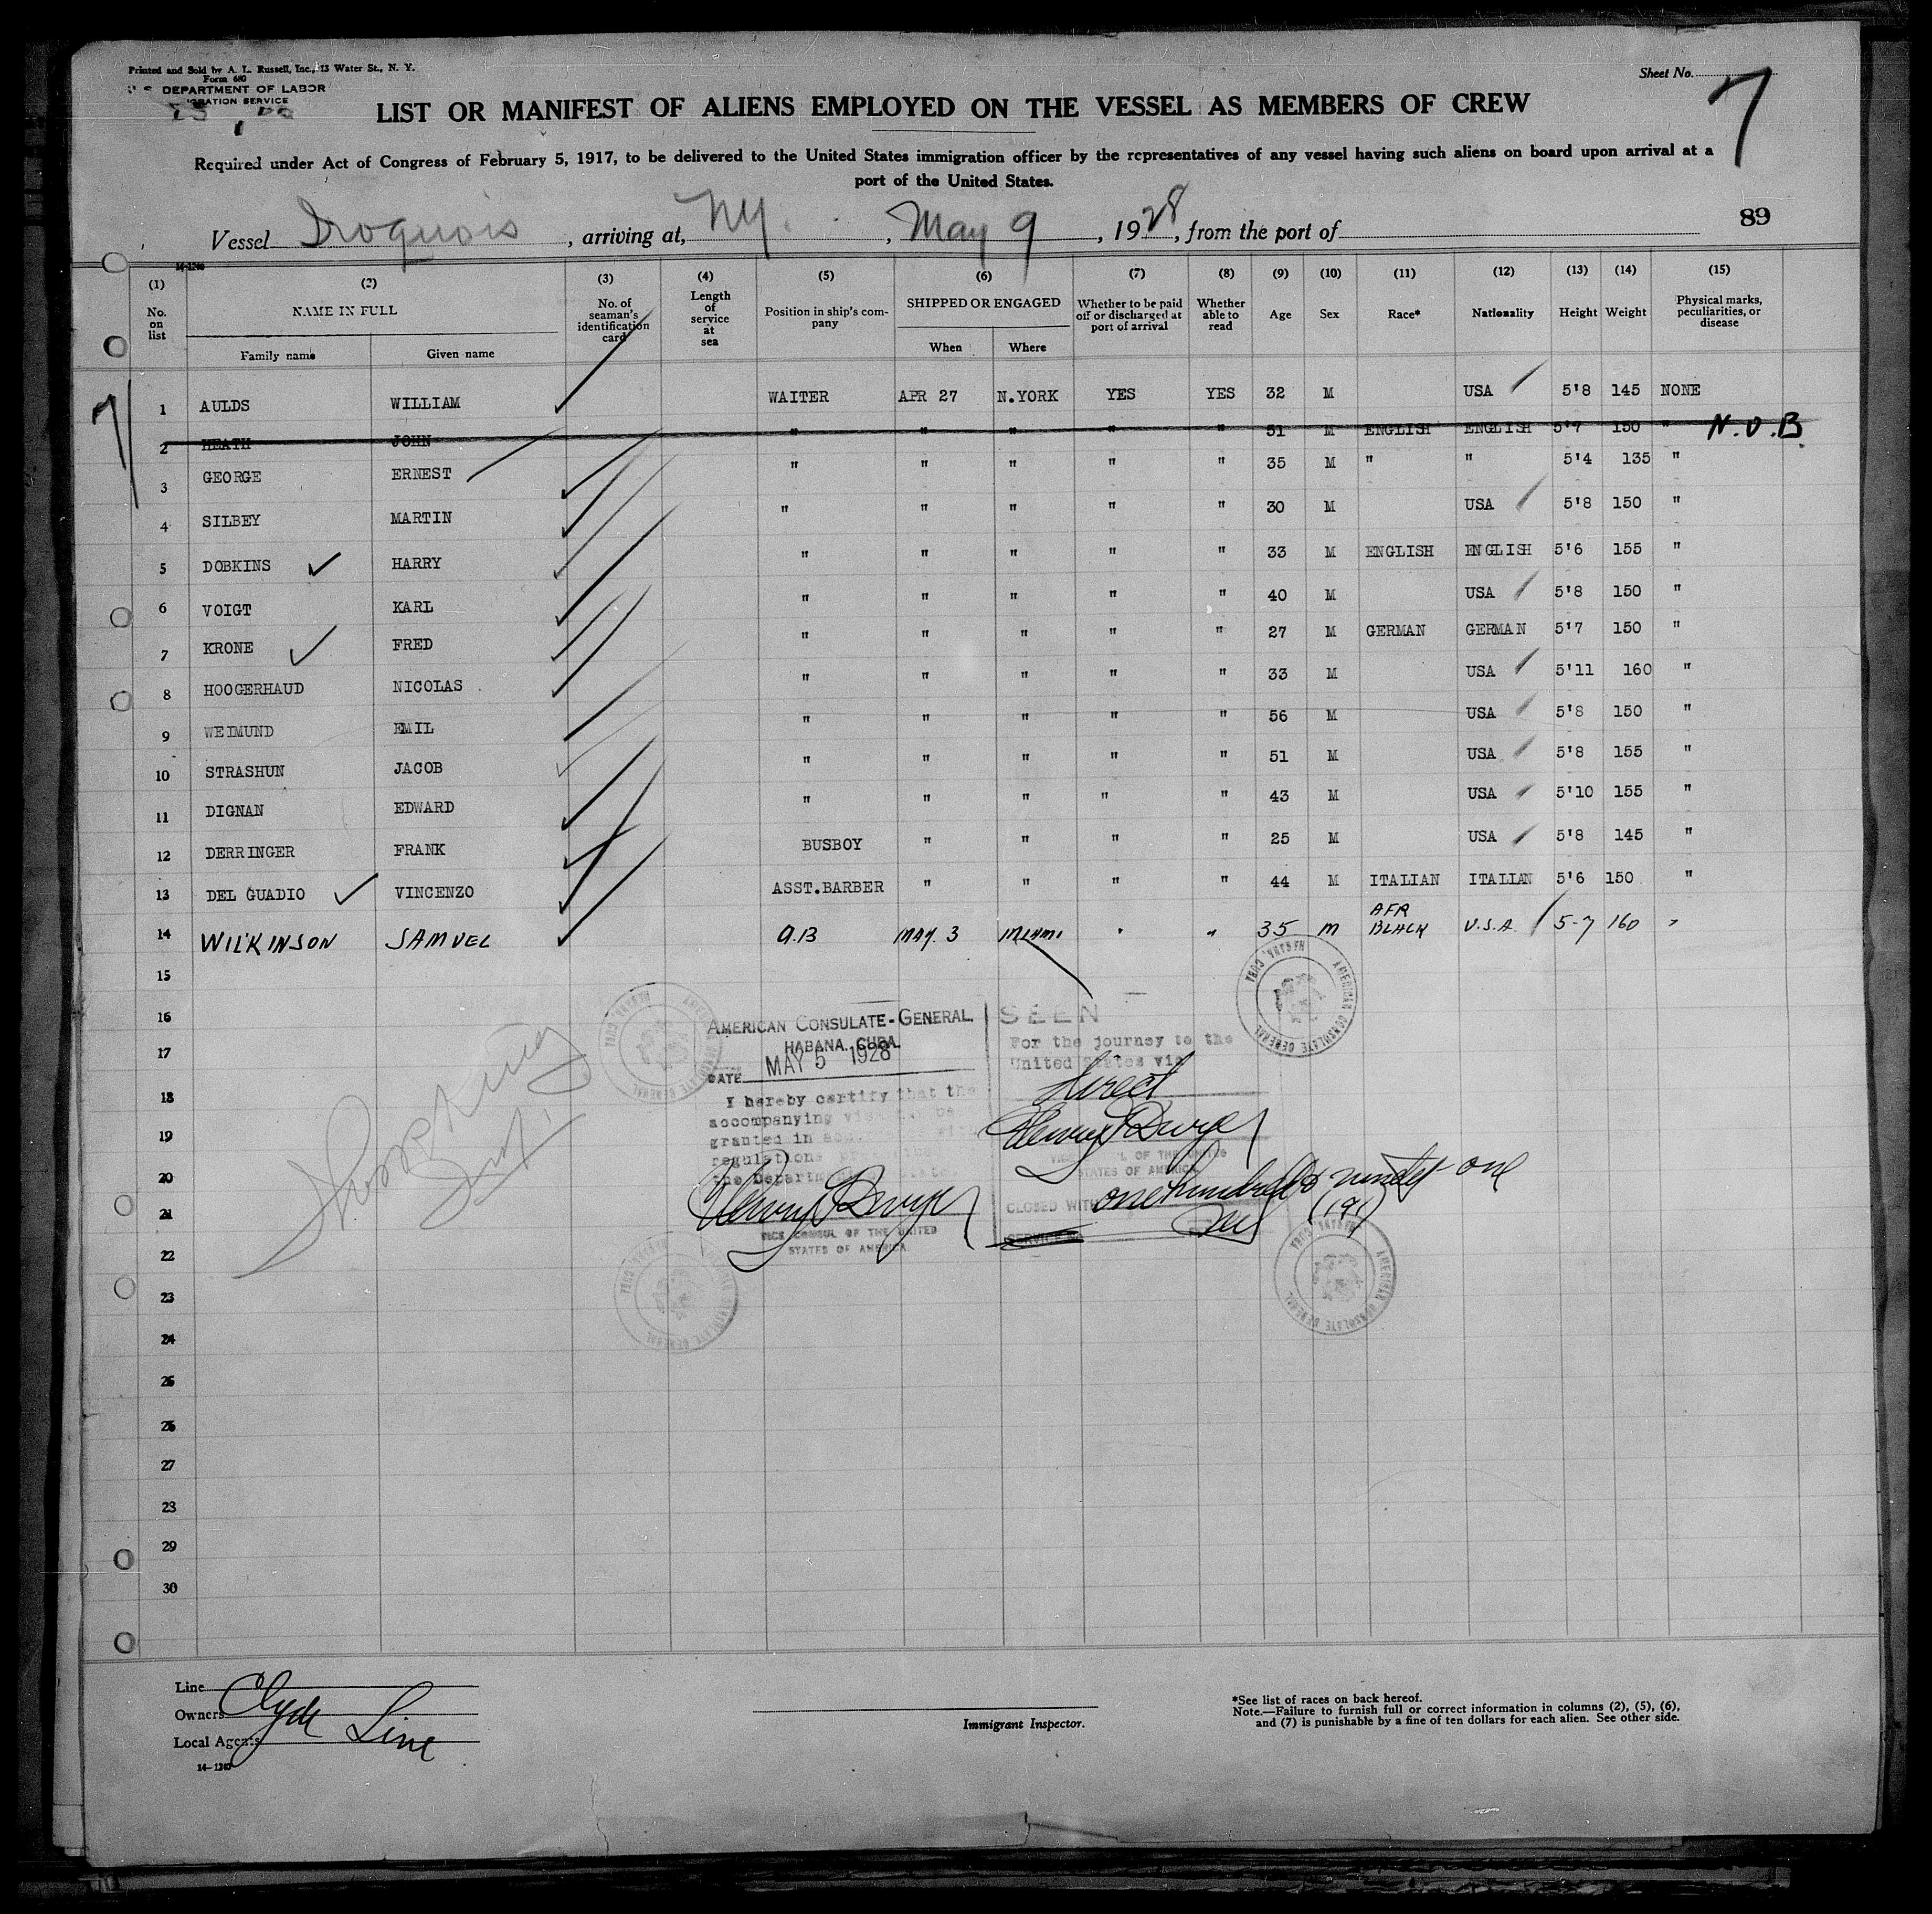 Printed and Sold by A. L. Russell, Inc., 13 Water St., N. Y.
Form 680
U. S. DEPARTMENT OF LABOR
IGRATION SERVICE
Sheet No. 7
LIST OR MANIFEST OF ALIENS EMPLOYED ON THE VESSEL AS MEMBERS OF CREW
Required under Act of Congress of February 5, 1917, to be delivered to the United States immigration officer by the representatives of any vessel having such aliens on board upon arrival at a
port of the United States.
89
Vessel Iroquois, arriving at, NY., May 9, 1928, from the port of
14-1240
(1) (2) (3) (4) (5) (6) (7) (8) (9) (10) (11) (12) (13) (14) (15)
No. on list NAME IN FULL No. of seaman's identification card Length of service at sea Position in ship's company SHIPPED OR ENGAGED Whether to be paid off or discharged at port of arrival Whether able to read Age Sex Race* Nationality Height Weight Physical marks, peculiarities, or disease
Family name Given name When Where
7
1 AULDS WILLIAM WAITER APR 27 N.YORK YES YES 32 M USA 5'8 145 NONE
2 HEATH JOHN " " " " " 51 M ENGLISH ENGLISH 5'7 150 " N.O.B
3 GEORGE ERNEST " " " " " 35 M " " 5'4 135 "
4 SILBEY MARTIN " " " " " 30 M USA 5'8 150 "
5 DOBKINS HARRY " " " " " 33 M ENGLISH ENGLISH 5'6 155 "
6 VOIGT KARL " " " " " 40 M USA 5'8 150 "
7 KRONE FRED " " " " " 27 M GERMAN GERMAN 5'7 150 "
8 HOOGERHAUD NICOLAS " " " " " 33 M USA 5'11 160 "
9 WEIMUND EMIL " " " " " 56 M USA 5'8 150 "
10 STRASHUN JACOB " " " " " 51 M USA 5'8 155 "
11 DIGNAN EDWARD " " " " " 43 M USA 5'10 155 "
12 DERRINGER FRANK BUSBOY " " " " 25 M USA 5'8 145 "
13 DEL GUADIO VINCENZO ASST.BARBER " " " " 44 M ITALIAN ITALIAN 5'6 150 "
14 WILKINSON SAMUEL A.B MAY. 3 MIAMI " " 35 M AFR BLACK U.S.A. 5-7 160 "
15
16
17
18
19
20
21
22
23
24
25
26
27
28
29
30
AMERICAN CONSULATE-GENERAL.
HABANA, CUBA.
DATE MAY 5 1928
I hereby certify that the
accompanying visa to be
granted in
regulations
the Department
VICE CONSUL OF THE UNITED
STATES OF AMERICA.
SEEN
For the journey to the
United States via
direct
VICE CONSUL OF THE UNITED
STATES OF AMERICA
CLOSED WITH one hundred & ninety one
(191)
SERVICE No
AMERICAN CONSULATE GENERAL HABANA, CUBA
AMERICAN CONSULATE GENERAL HABANA, CUBA
AMERICAN CONSULATE GENERAL HABANA, CUBA
AMERICAN CONSULATE GENERAL HABANA, CUBA
Line
Owners Clyde Line
Local Agents
14-1240
Immigrant Inspector.
*See list of races on back hereof.
Note.—Failure to furnish full or correct information in columns (2), (5), (6),
and (7) is punishable by a fine of ten dollars for each alien. See other side.